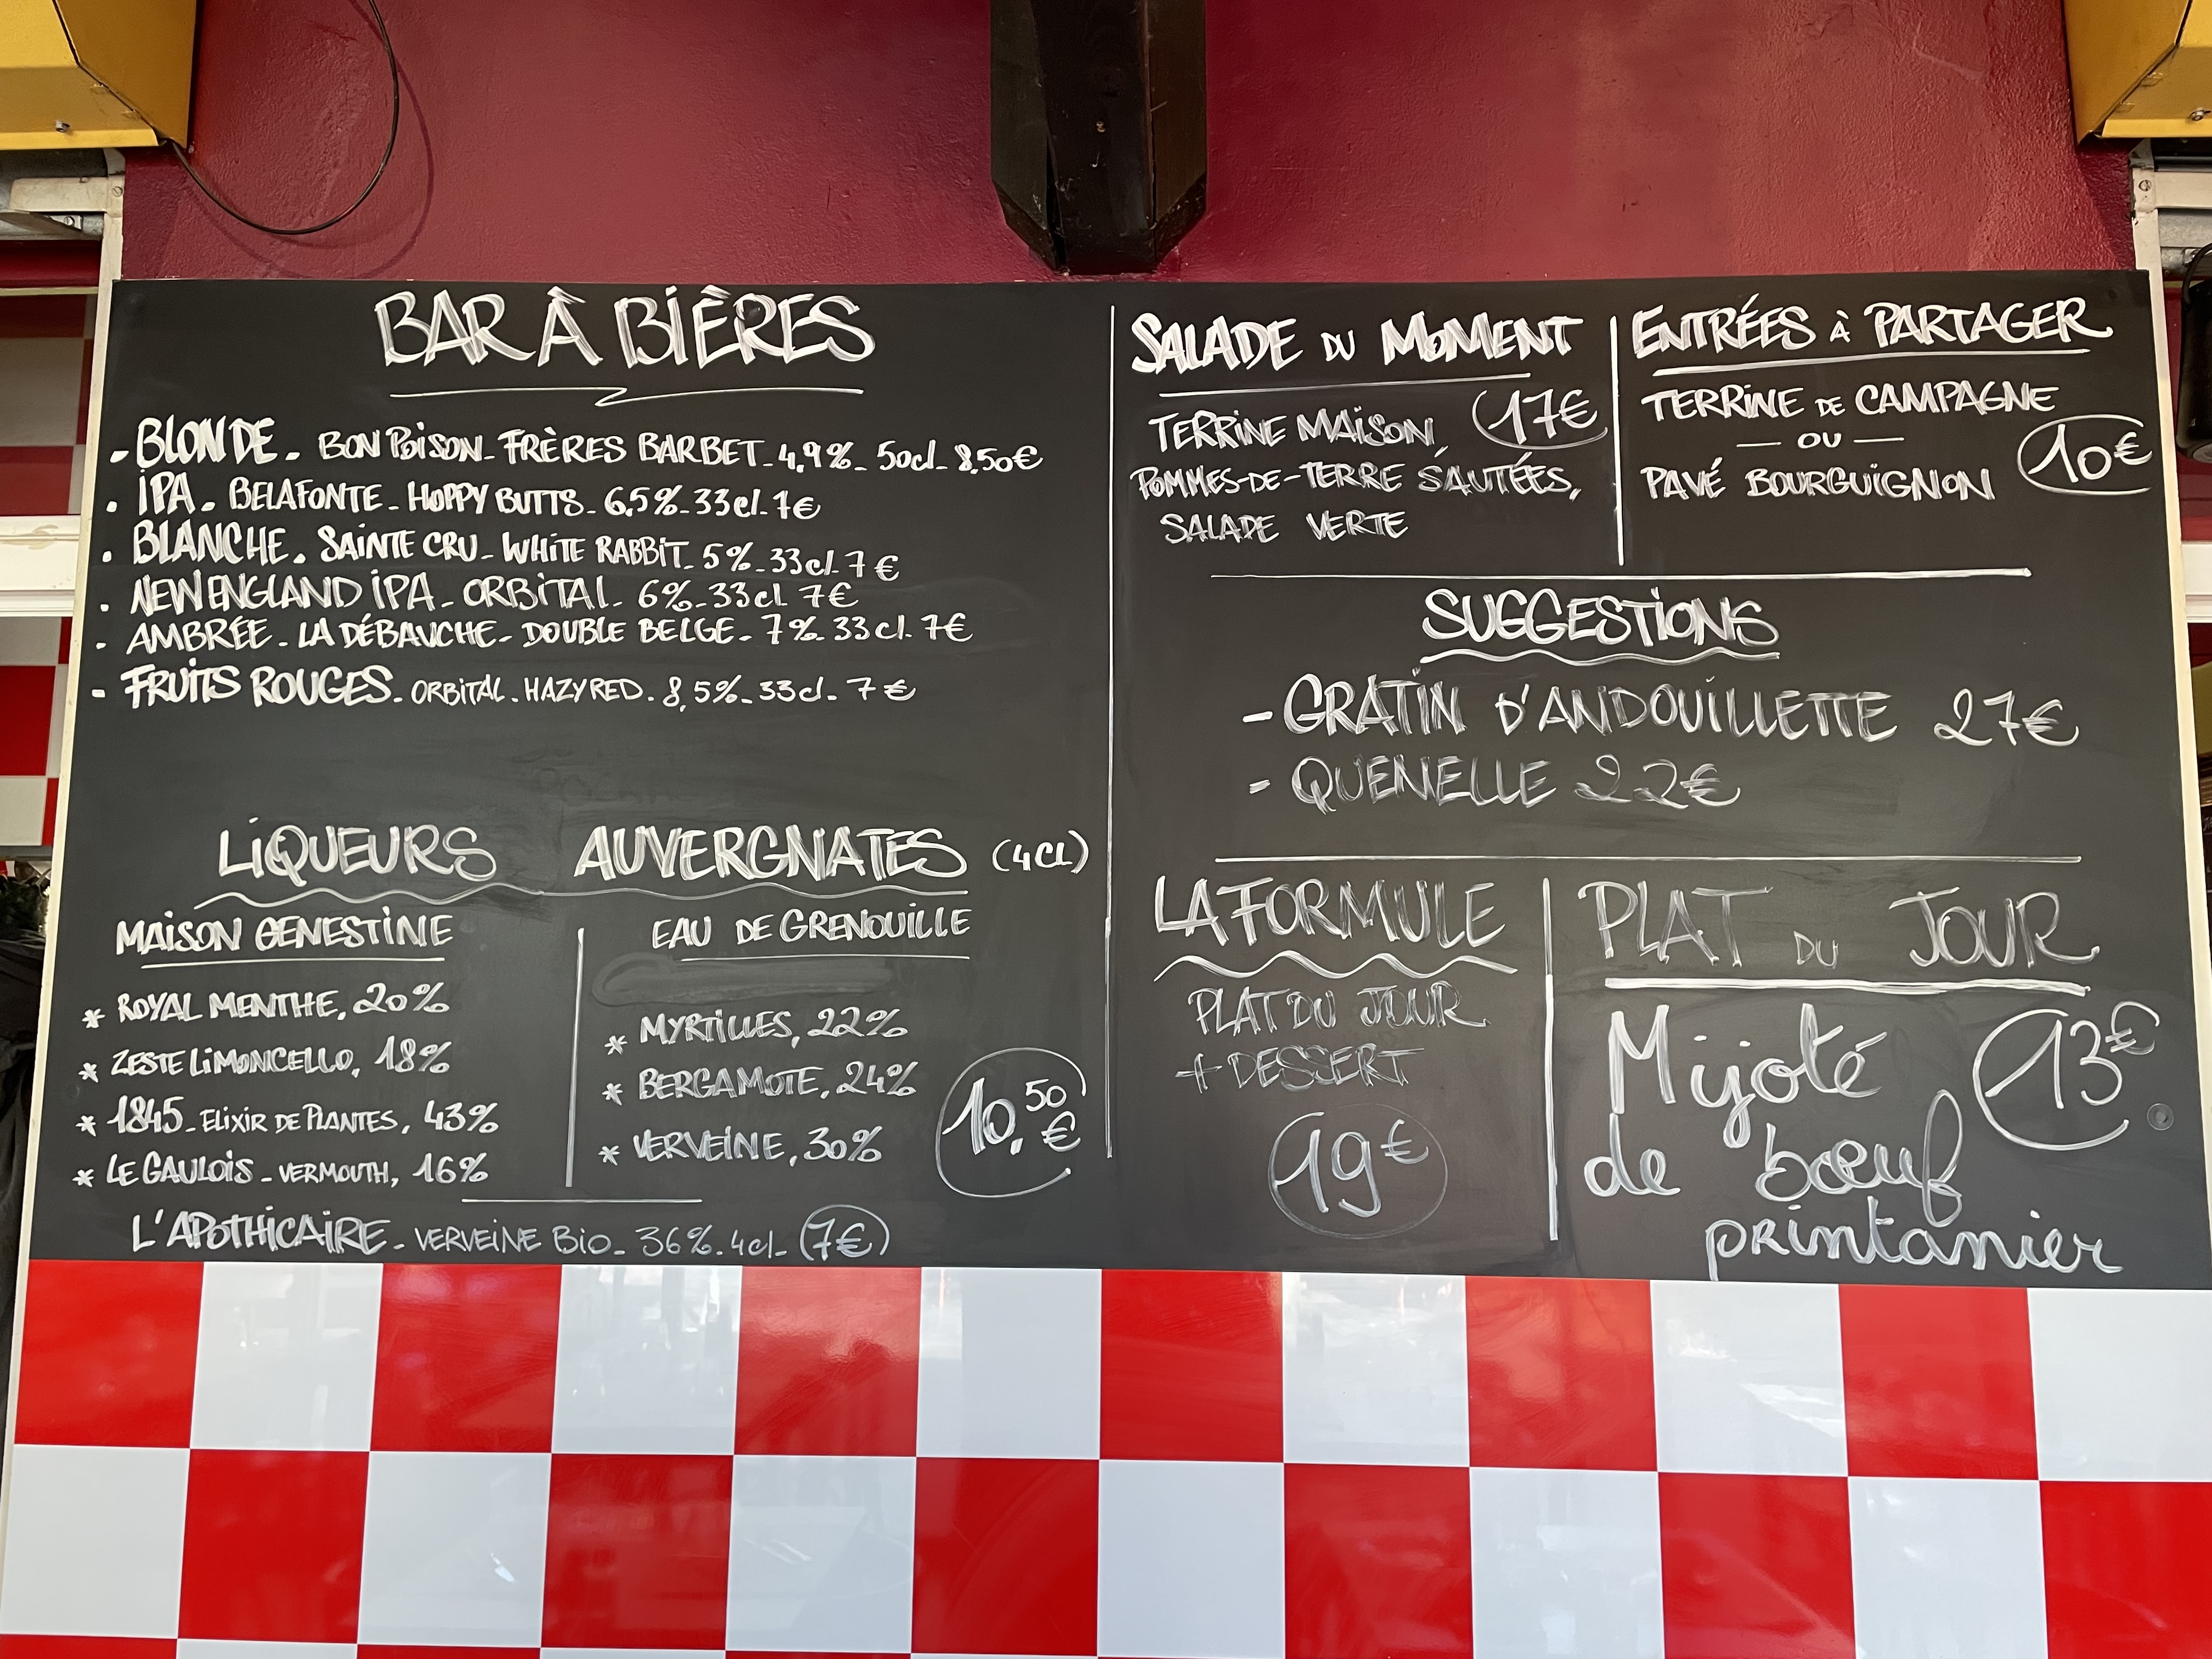 BAR À BIÈRES
- BLONDE - BON POISON - FRÈRES BARBET - 4,9% - 50cl - 8,50€
- IPA - BELAFONTE - HOPPY BUTTS - 6,5% - 33cl - 7€
- BLANCHE - SAINTE CRU - WHITE RABBIT - 5% - 33cl - 7€
- NEW ENGLAND IPA - ORBITAL - 6% - 33cl 7€
- AMBRÉE - LA DÉBAUCHE - DOUBLE BELGE - 7% - 33cl - 7€
- FRUITS ROUGES - ORBITAL - HAZY RED - 8,5% - 33cl - 7€
LIQUEURS AUVERGNATES (4CL)
MAISON GENESTINE
* ROYAL MENTHE, 20%
* ZESTE LIMONCELLO, 18%
* 1845 - ELIXIR DE PLANTES, 43%
* LE GAULOIS - VERMOUTH, 16%
EAU DE GRENOUILLE
* MYRTILLES, 22%
* BERGAMOTE, 24%
* VERVEINE, 30%
10,50€
L'APOTHICAIRE - VERVEINE BIO - 36% - 4cl - (7€)
SALADE DU MOMENT
TERRINE MAISON, 17€
POMMES-DE-TERRE SAUTÉES,
SALADE VERTE
ENTRÉES À PARTAGER
TERRINE DE CAMPAGNE
— OU —
PAVÉ BOURGUIGNON
10€
SUGGESTIONS
- GRATIN D'ANDOUILLETTE 27€
- QUENELLE 22€
LA FORMULE
PLAT DU JOUR
+ DESSERT
19€
PLAT DU JOUR
Mijoté 13€
de bœuf
printanier